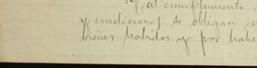 al cumplimiento
y condiciones se obligan
bienes habidos y por haber